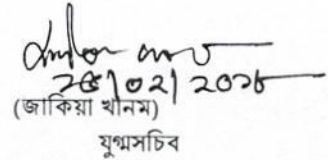 ২৫/০২/২০২৬
(জাকিয়া খানম)
যুগ্মসচিব